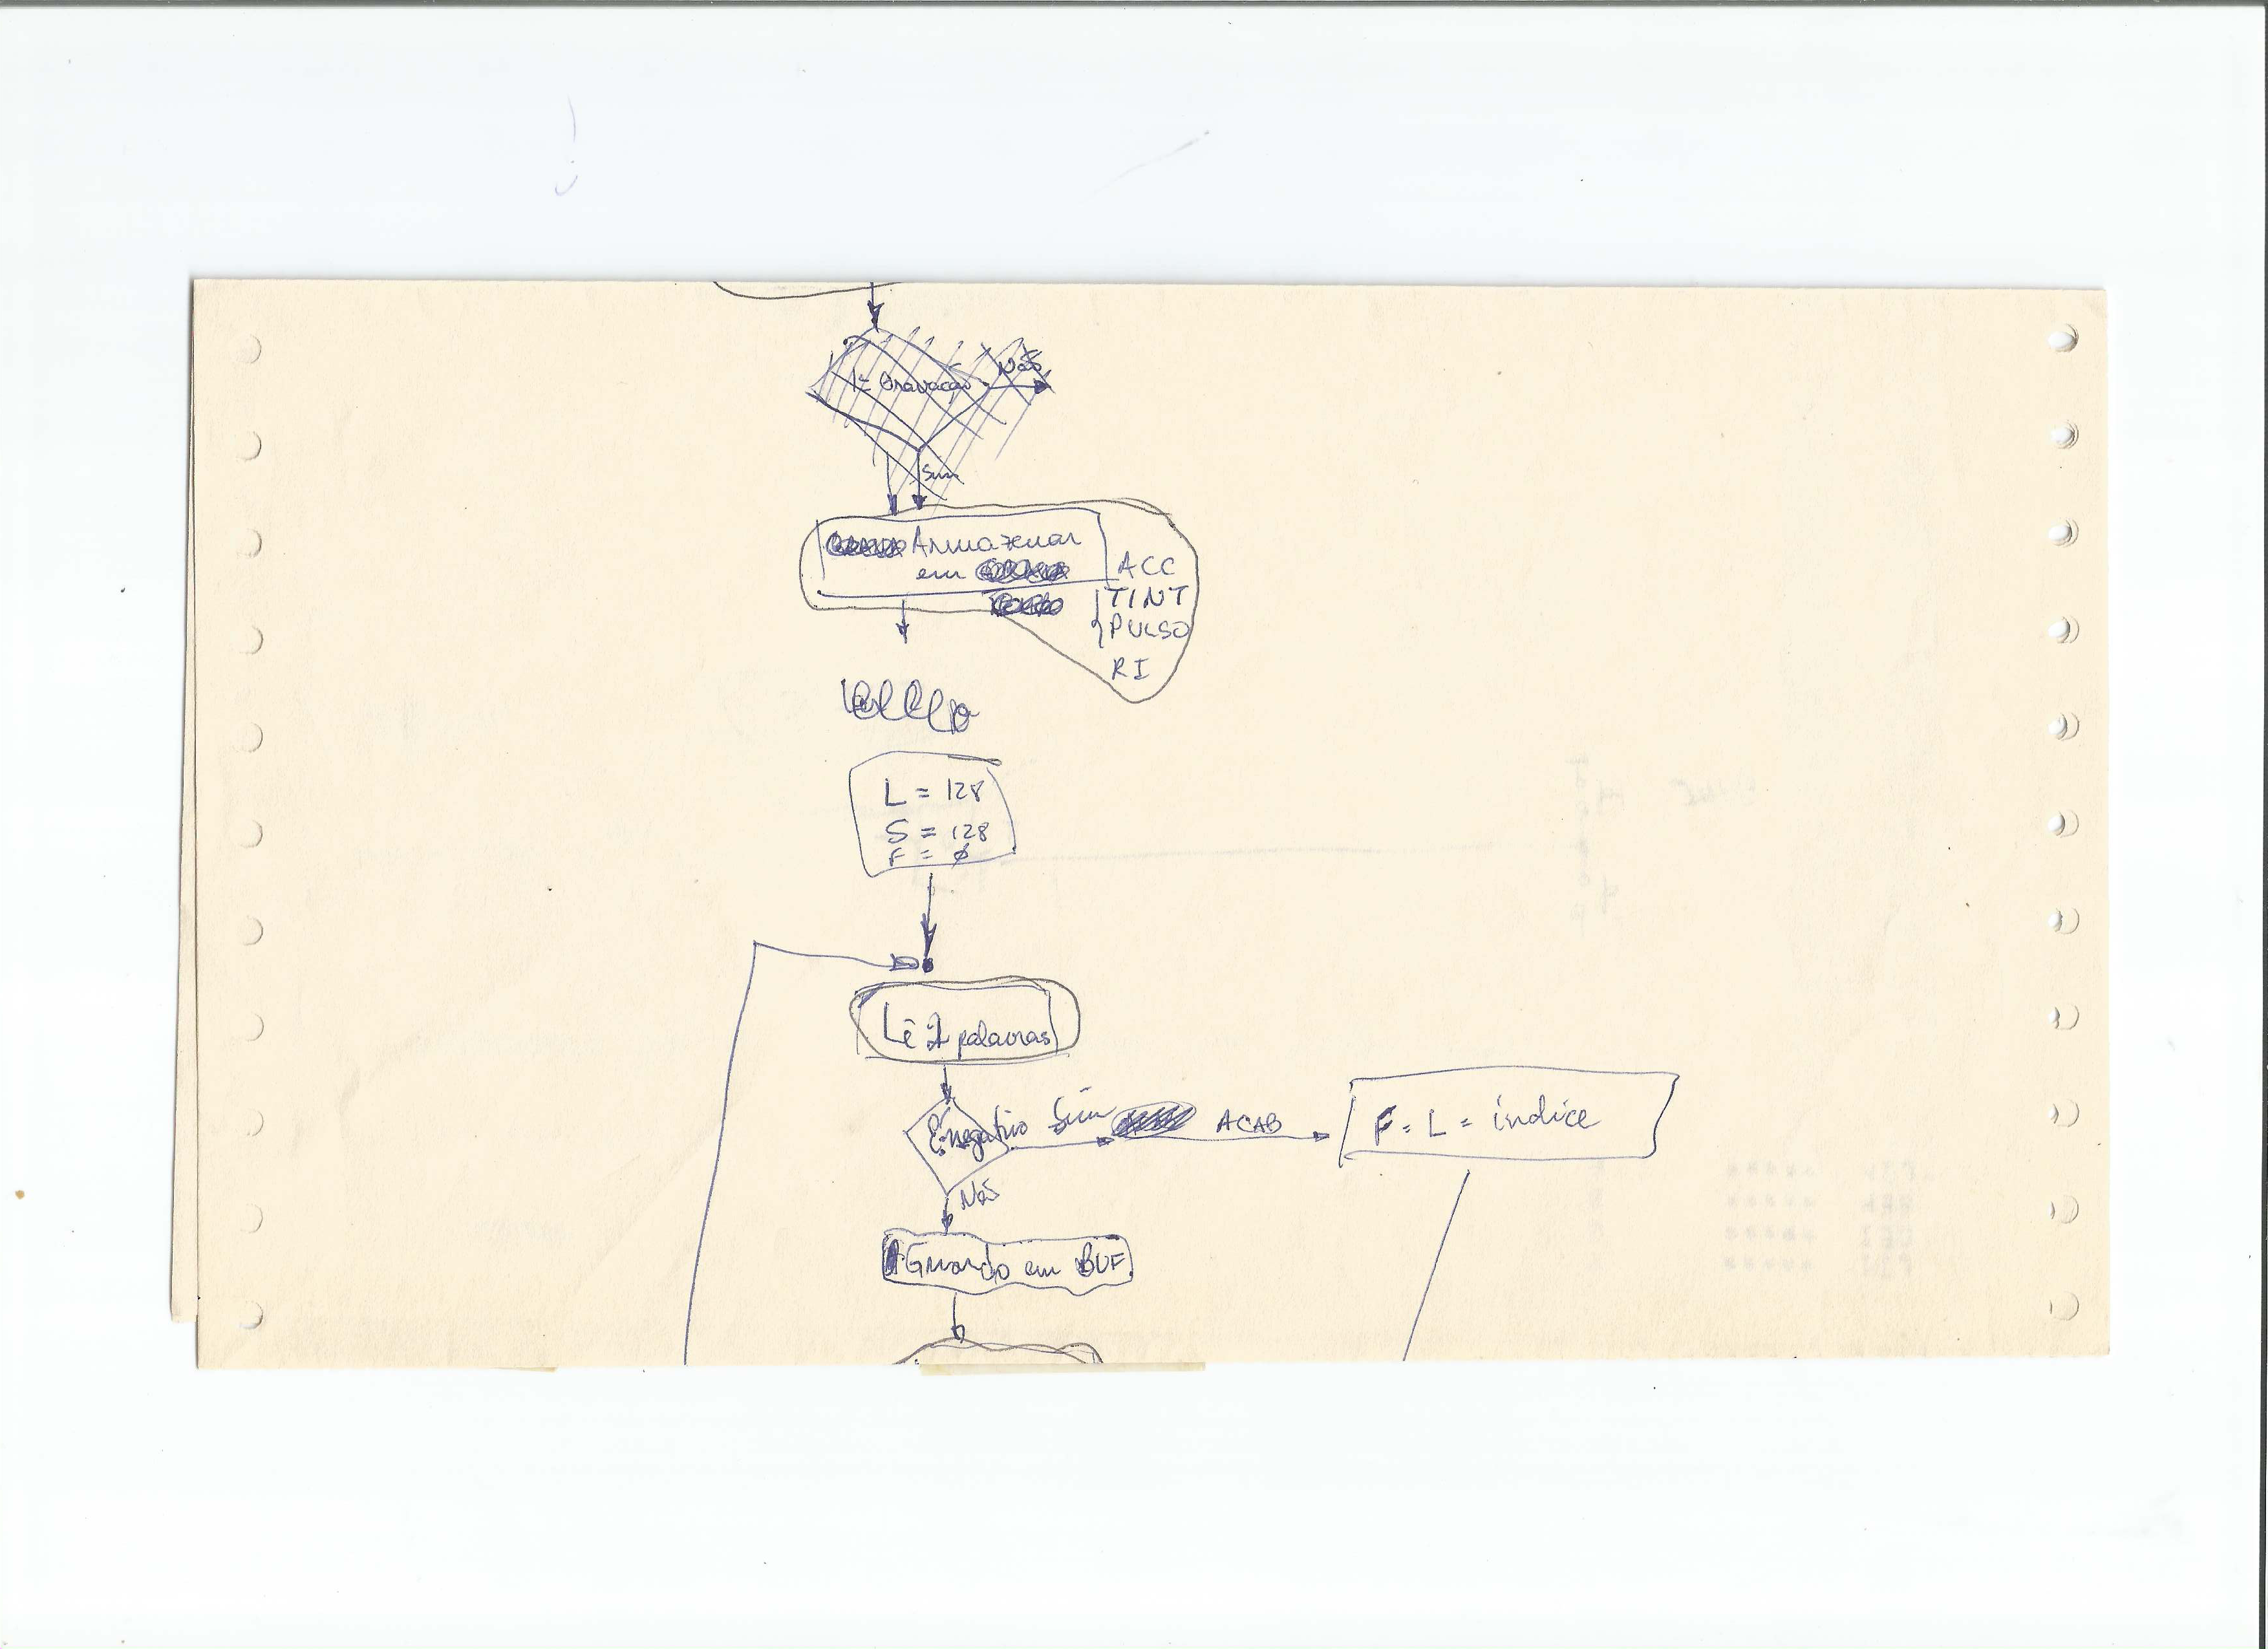 1ª Gravação
Não
Sim
Armazenar
em
ACC
TINT
PULSO
RI
L = 128
S = 128
F = ø
Lê 2 palavras
É negativo
Sim
ACAB
F = L = índice
Não
Guardo em BUF